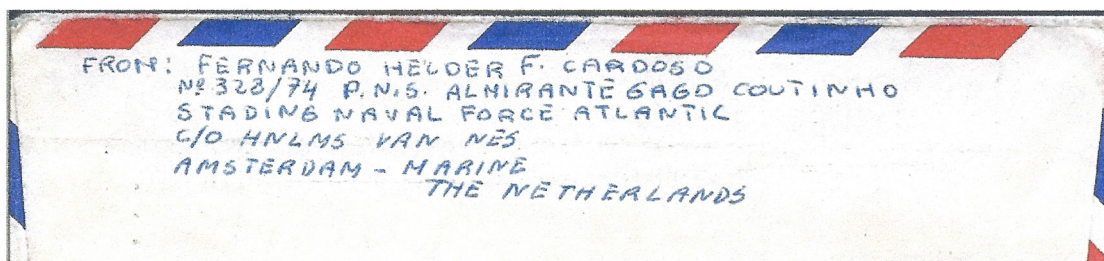 FROM: FERNANDO HELDER F. CARDOSO
Nº 328/74 P.N.S. ALMIRANTE GAGO COUTINHO
STADING NAVAL FORCE ATLANTIC
C/O HNLMS VAN NES
AMSTERDAM - MARINE
THE NETHERLANDS